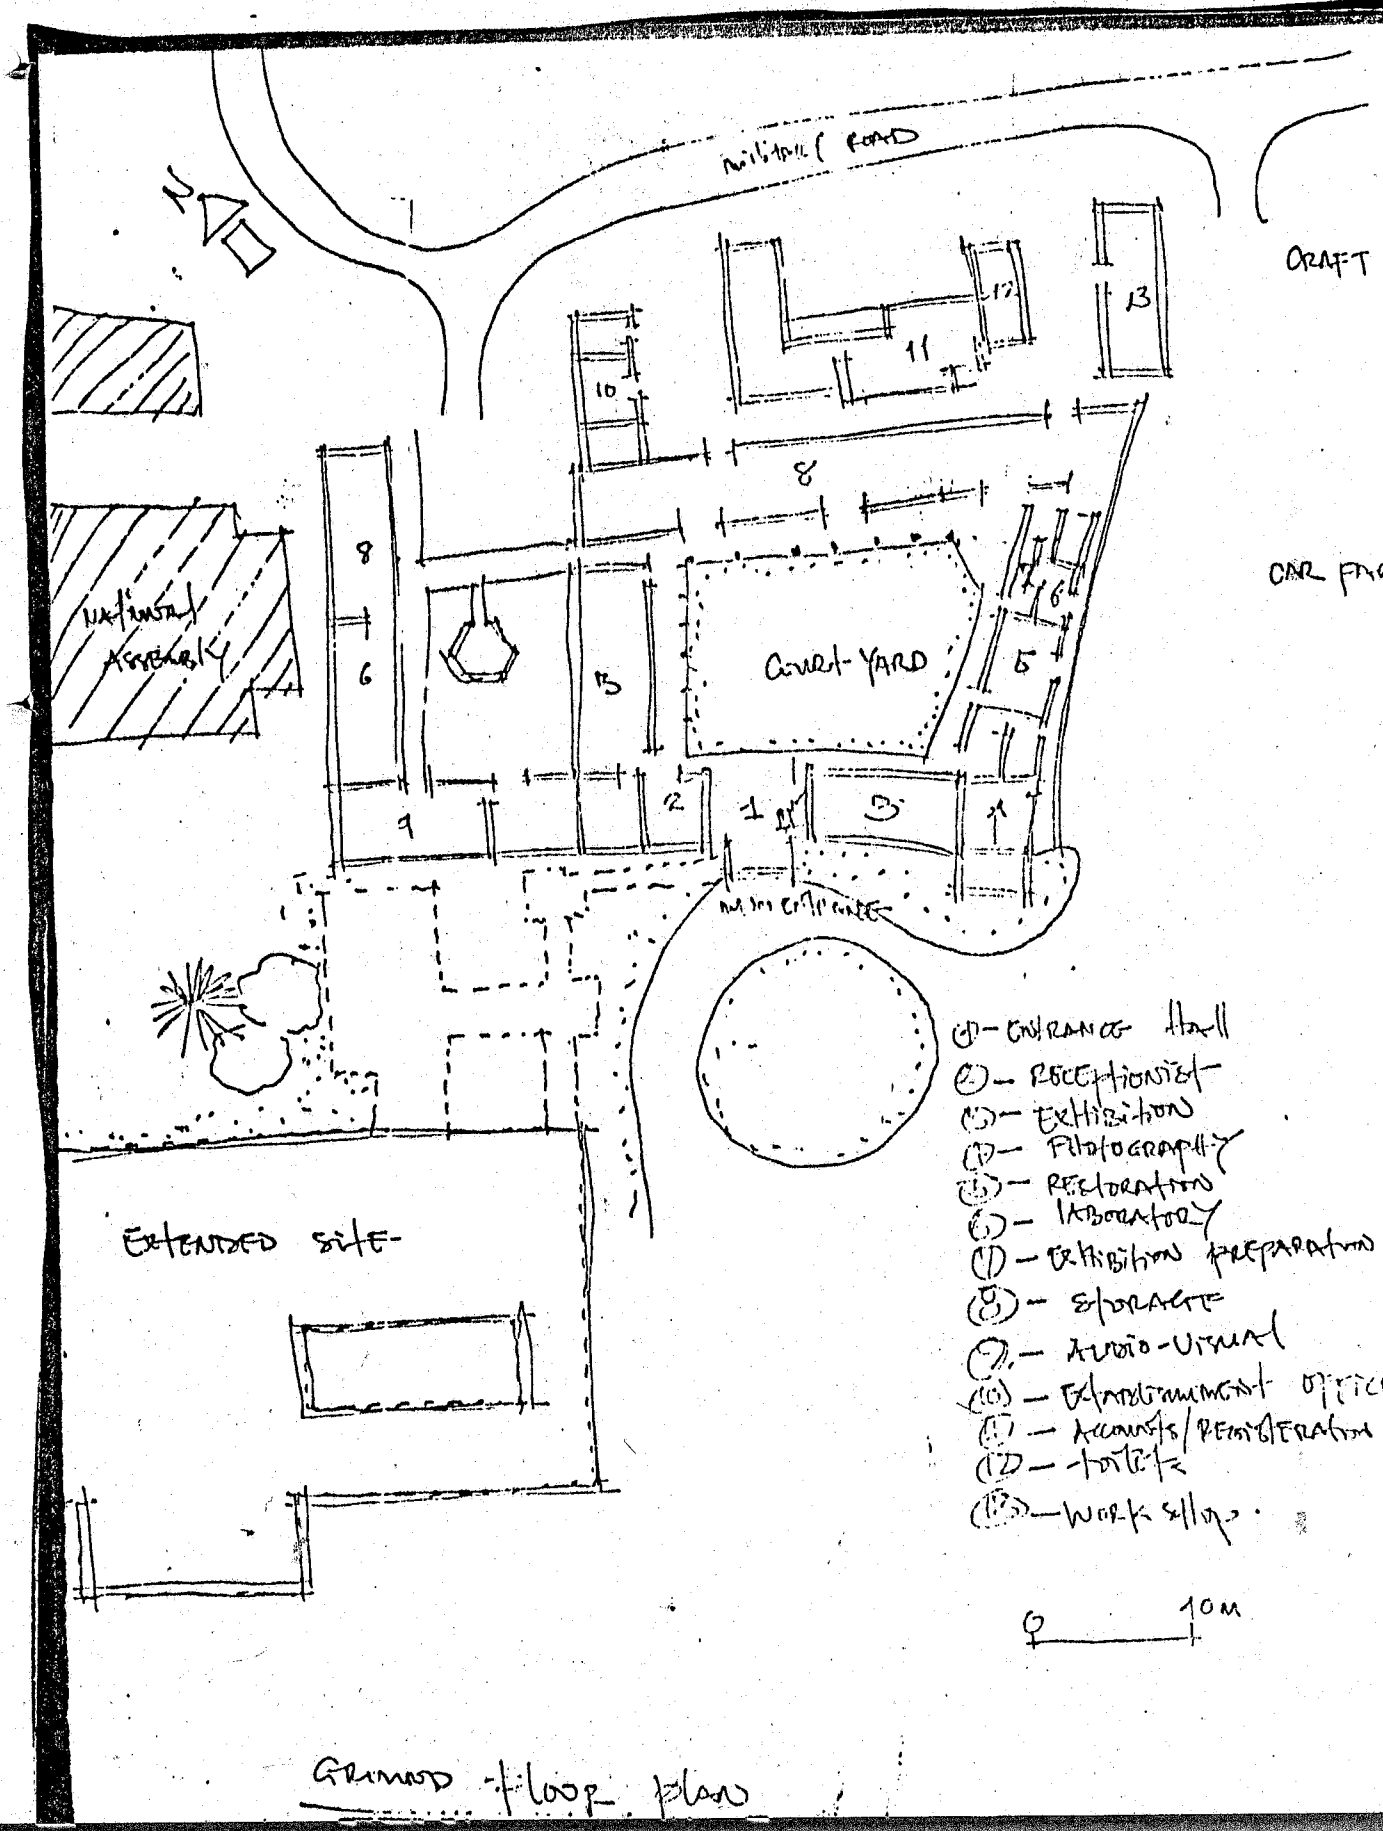 N
MILITARY ROAD
CRAFT
12
13
11
10
8
CAR PAR
8
NATIONAL
ASSEMBLY
7
6
COURT-YARD
5
6
3
2
1
3
4
9
MAIN ENTRANCE
①- ENTRANCE HALL
②- RECEPTIONIST
③- EXHIBITION
④- PHOTOGRAPHY
⑤- RESTORATION
⑥- LABORATORY
⑦- EXHIBITION PREPARATION
⑧- STORAGE
⑨- AUDIO-VISUAL
⑩- ESTABLISHMENT OFFICE
⑪- ACCOUNTS/REGISTERATION
⑫- TOILETS
⑬- WORK SHOP.
EXTENDED SITE
0 10M
GROUND FLOOR PLAN